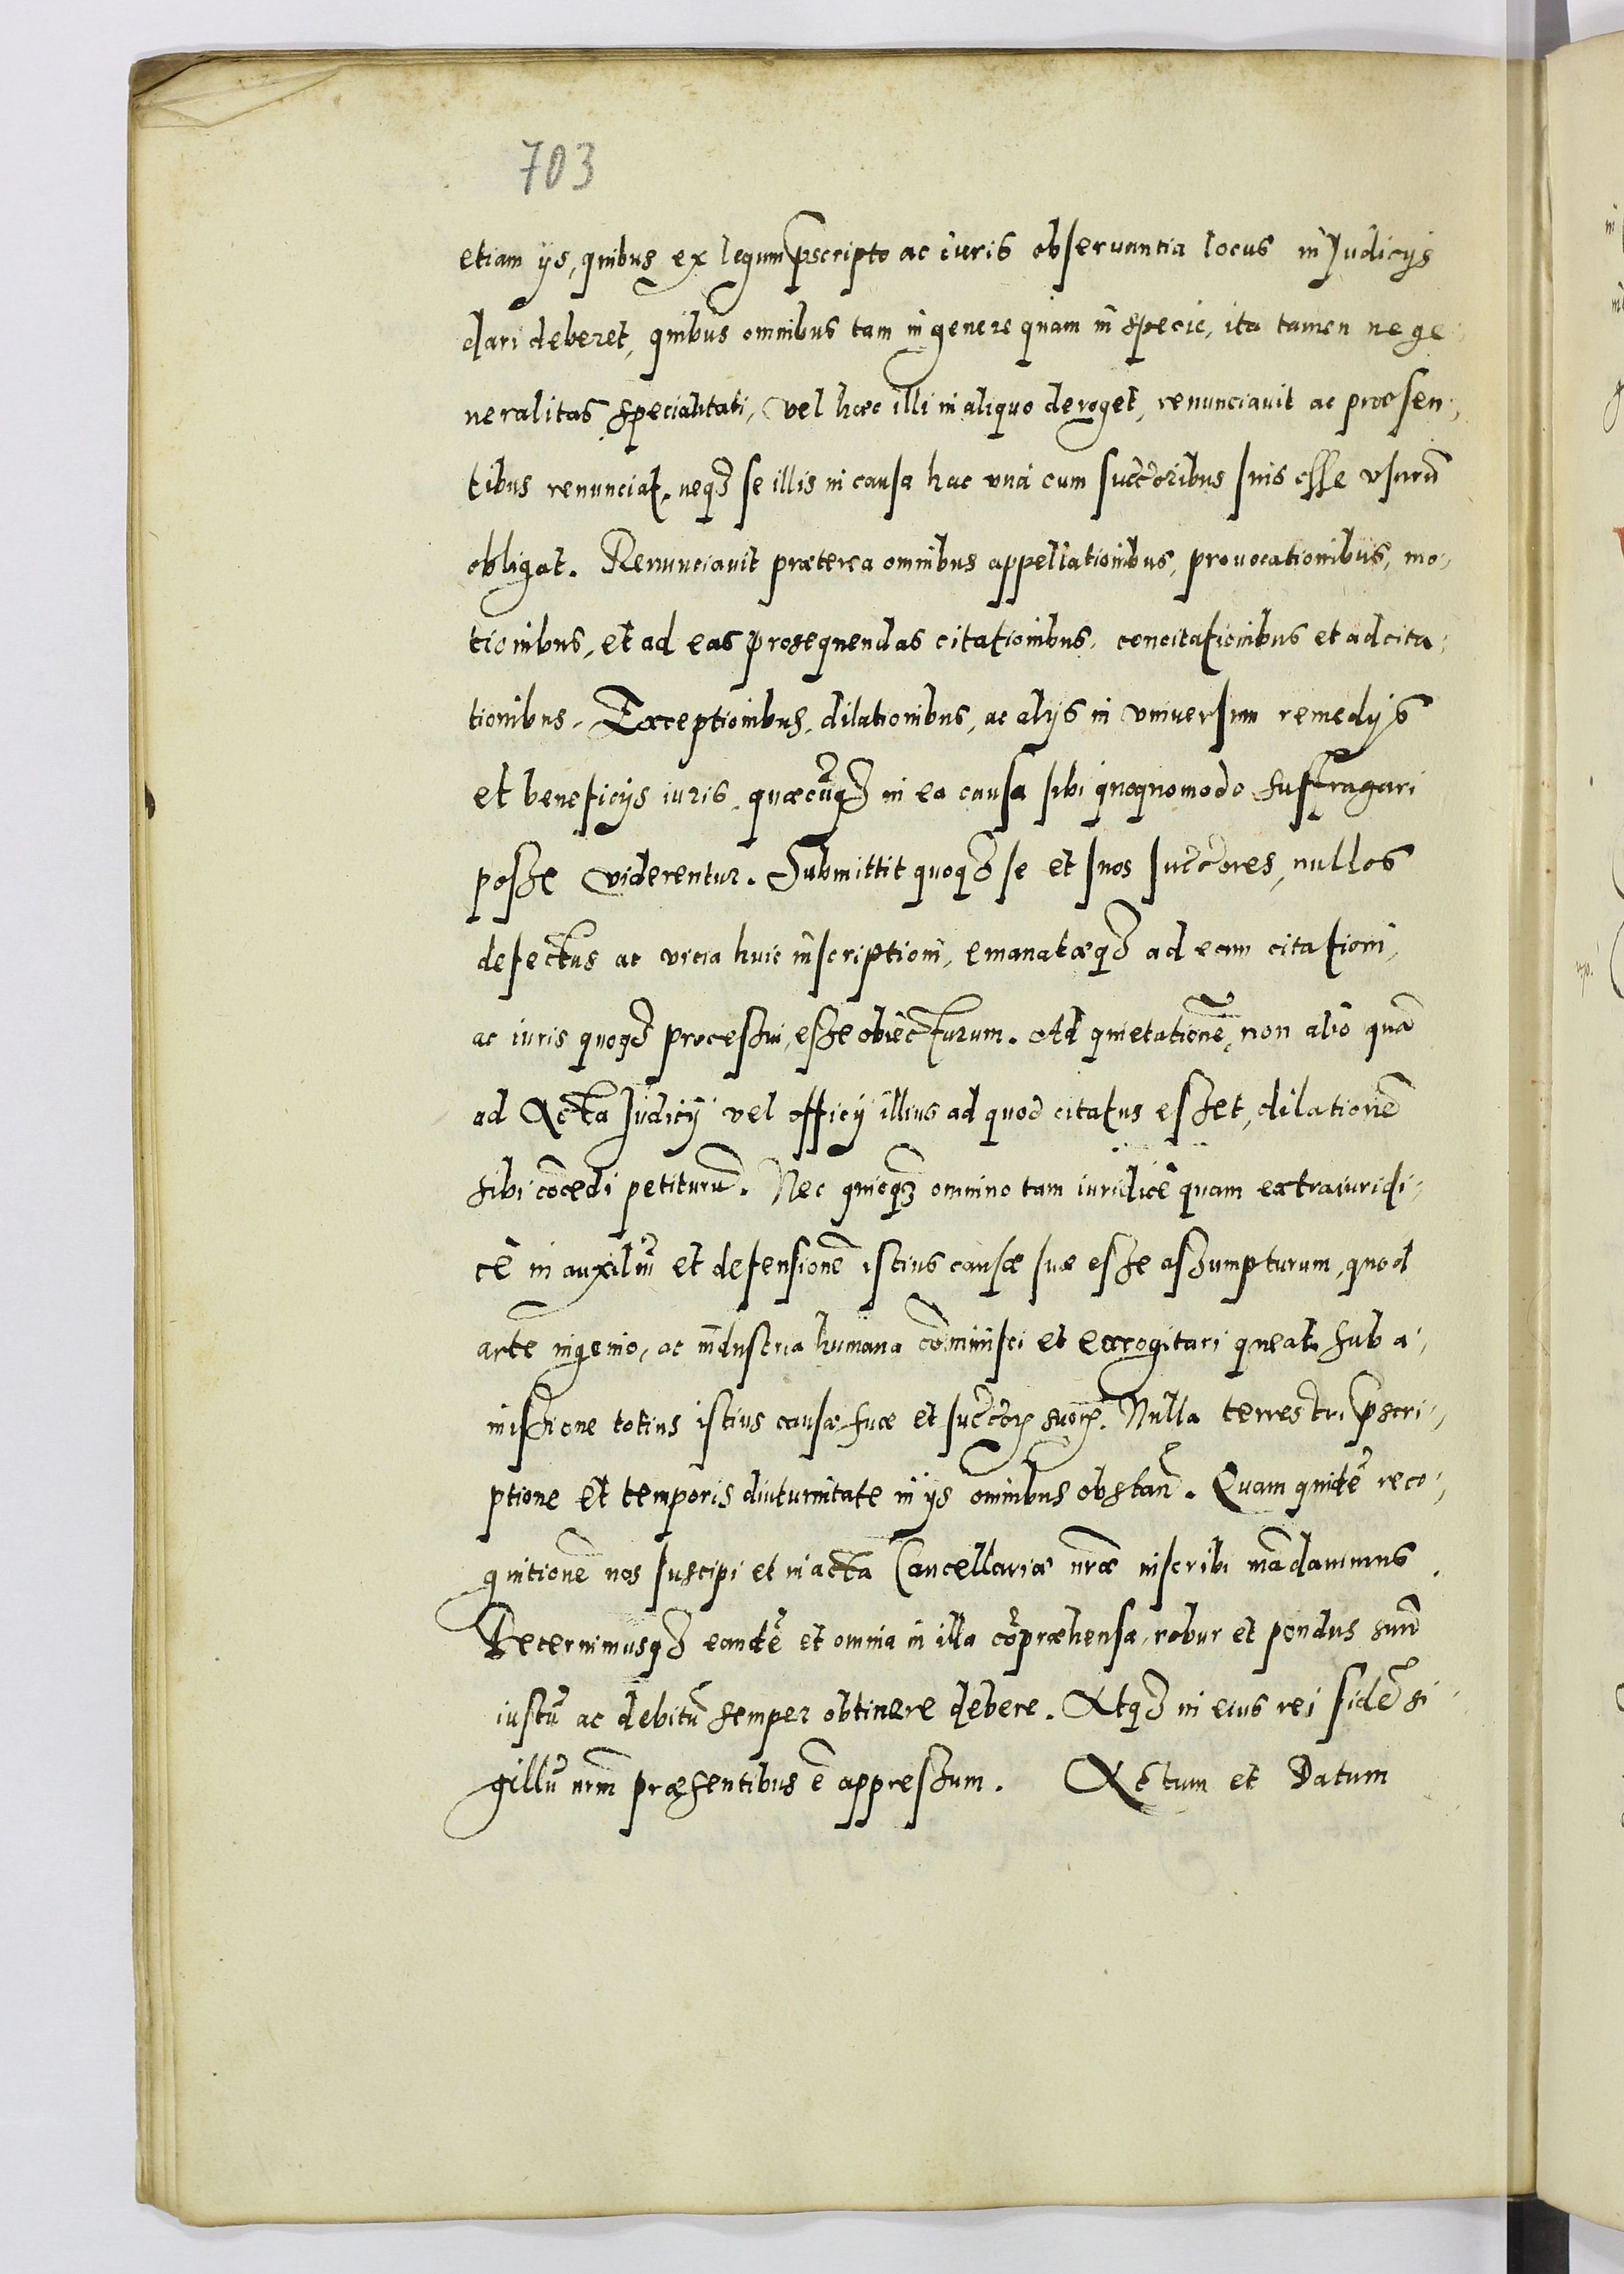 703
etiam ijs, quibus ex legum p̄scripto ac iuris obseruantia locus in Judicijs
dari deberet, quibus omnibus tam in genere quam in specie, ita tamen ne ge,
neralitas specialitati, vel haec illi in aliquo deroget, renunciauit ac praesen,
tibus renunciat, neqȝ se illis in causa hac vna cum succ̃oribus suis esse vsurũ
obligat. Renunciauit praeterea omnibus appellationibus, prouocationibus, mo,
tionibus, et ad eas prosequendas citationibus, concitationibus et adcita,
tionibus. Exceptionibus, dilationibus, ac alijs in vniuersum remedijs
et beneficijs iuris, quaecũqȝ in ea causa sibi quoquomodo suffragari
posse viderentur. Submittit quoqȝ se et suos succ̃ores, nullos
defectus ac vicia huic inscriptioni, emanataeqȝ ad eam citationi,
ac iuris quoqȝ processui, esse obiecturum. Ad quietationẽ, non alio quã
ad Acta Judicij vel officij illius ad quod citatus esset, dilationẽ
sibi cõcedi petiturũ. Nec quicqȝ omnino tam iuridicè quam extraiuridi,
cè in auxiliũ et defensionẽ istius causae suae esse assumpturum, quod
arte ingenio, ac industria humana cõminisci et excogitari queat, sub a,
missione totius istius causae suae et succ̃orꝝ suorꝝ. Nulla terrestri p̄scri,
ptione et temporis diuturnitate in ijs omnibus obstañ. Quam quidẽ reco,
gnitionẽ nos suscipi et in acta Cancellariae nr̃ae inscribi mãdauimus.
Decernimusqȝ eandẽ et omnia in illa cõpraehensa, robur et pondus suũ
iustũ ac debitũ semper obtinere debere. Atqȝ in eius rei fidẽ si,
gillũ nr̃m praesentibus ẽ appressum. Actum et Datum